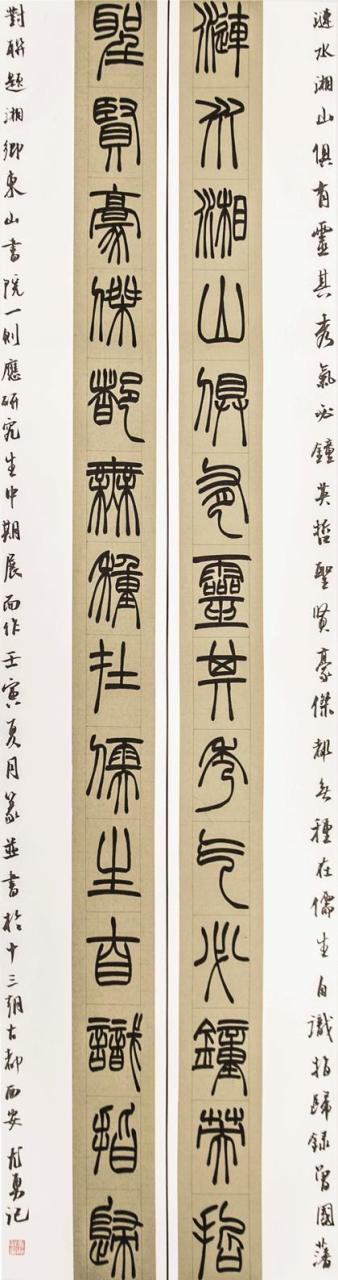 漣水湘山俱有靈其秀氣必鐘英哲聖賢豪傑都無種在儒生自識指歸錄曾國藩
漣水湘山俱有靈其秀气必鐘英哲
聖賢豪傑都無種在儒生自識指歸
對聯題湘鄉東山書院一則應研究生中期展而作壬寅夏月篆並書於十三朝古都西安勇記